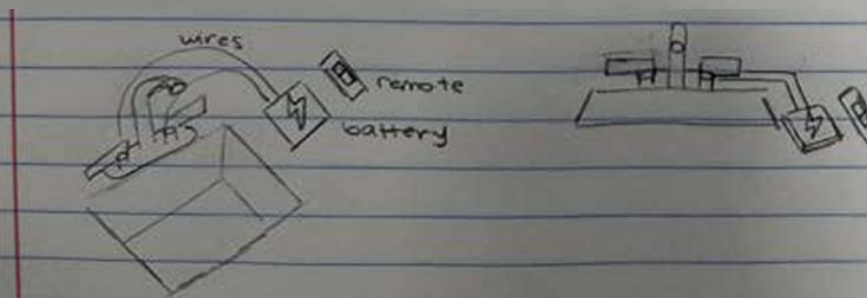 wires
remote
battery